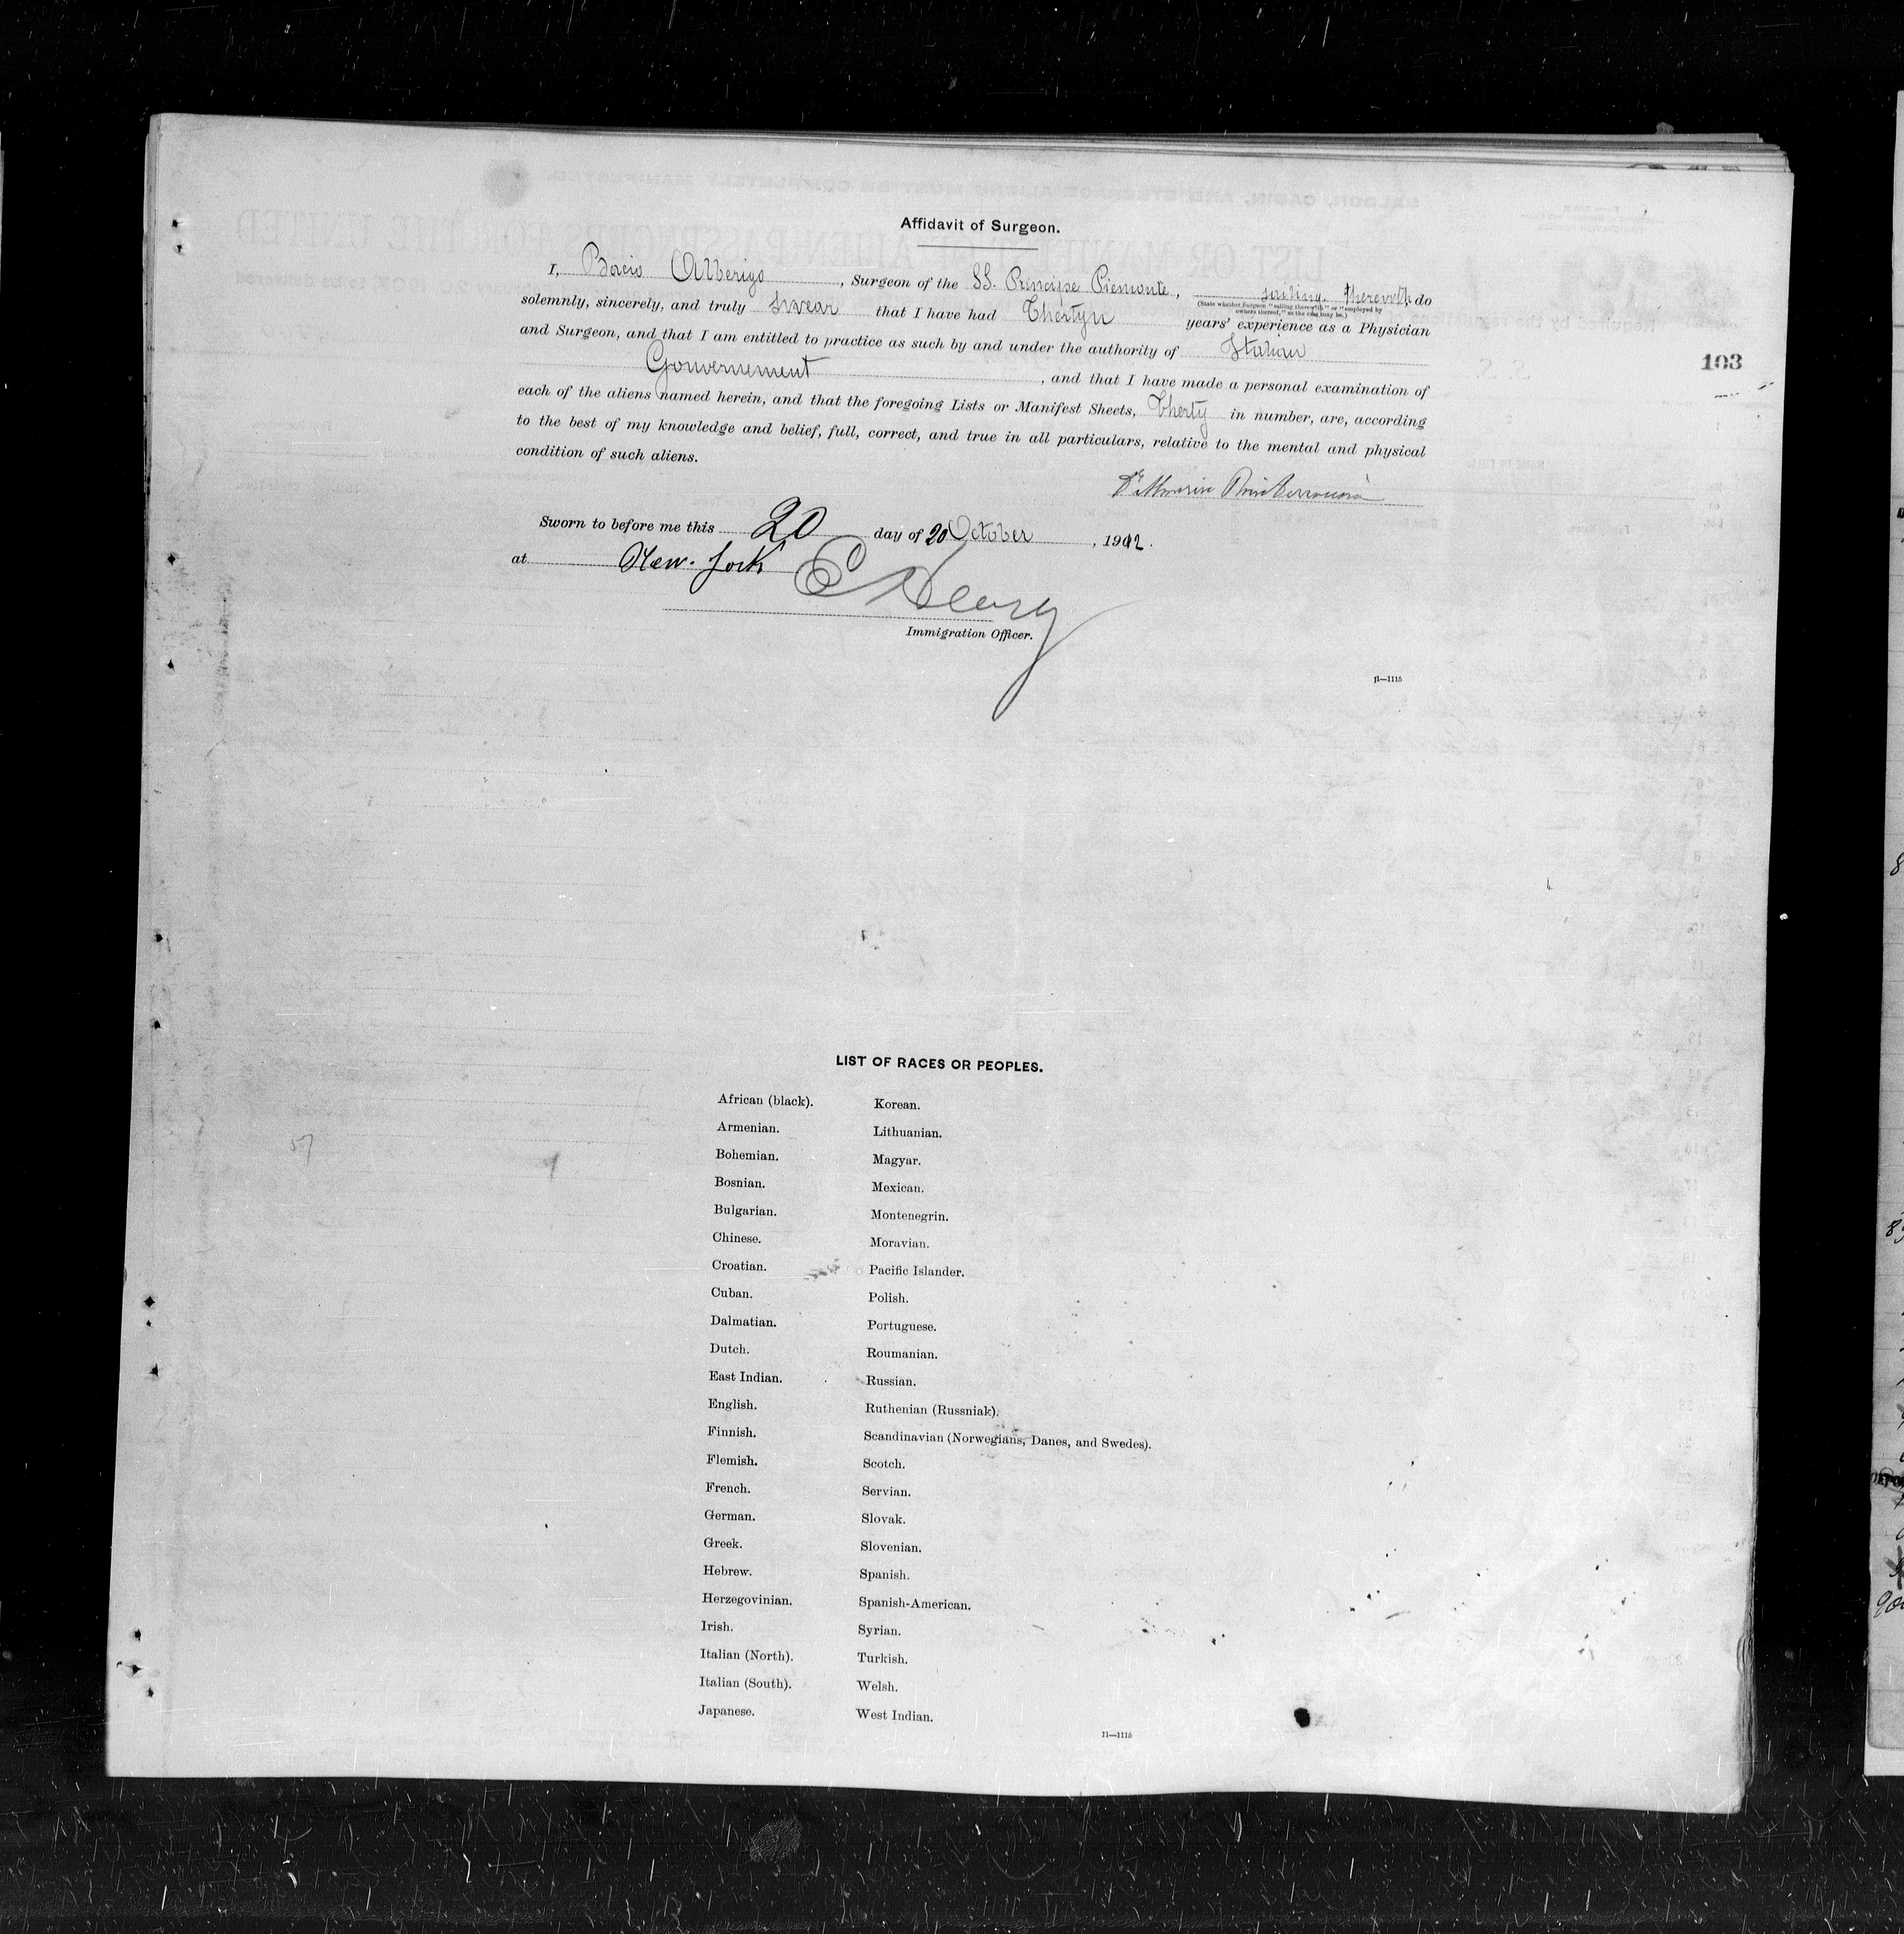 Affidavit of Surgeon.
I, Alberigo, Surgeon of the SS. Principe Piemonte, sailing therewith do
(State whether Surgeon "sailing therewith" or "employed by owners thereof," as the case may be.)
solemnly, sincerely, and truly swear that I have had years' experience as a Physician
and Surgeon, and that I am entitled to practice as such by and under the authority of Italian
Gouvernement, and that I have made a personal examination of
103
each of the aliens named herein, and that the foregoing Lists or Manifest Sheets, Therty in number, are, according
to the best of my knowledge and belief, full, correct, and true in all particulars, relative to the mental and physical
condition of such aliens.
Sworn to before me this 20 day of 20 October, 1912.
at New-York
Immigration Officer.
11—1115
LIST OF RACES OR PEOPLES.
African (black). Korean.
Armenian. Lithuanian.
Bohemian. Magyar.
Bosnian. Mexican.
Bulgarian. Montenegrin.
Chinese. Moravian.
Croatian. Pacific Islander.
Cuban. Polish.
Dalmatian. Portuguese.
Dutch. Roumanian.
East Indian. Russian.
English. Ruthenian (Russniak).
Finnish. Scandinavian (Norwegians, Danes, and Swedes).
Flemish. Scotch.
French. Servian.
German. Slovak.
Greek. Slovenian.
Hebrew. Spanish.
Herzegovinian. Spanish-American.
Irish. Syrian.
Italian (North). Turkish.
Italian (South). Welsh.
Japanese. West Indian.
11—1115